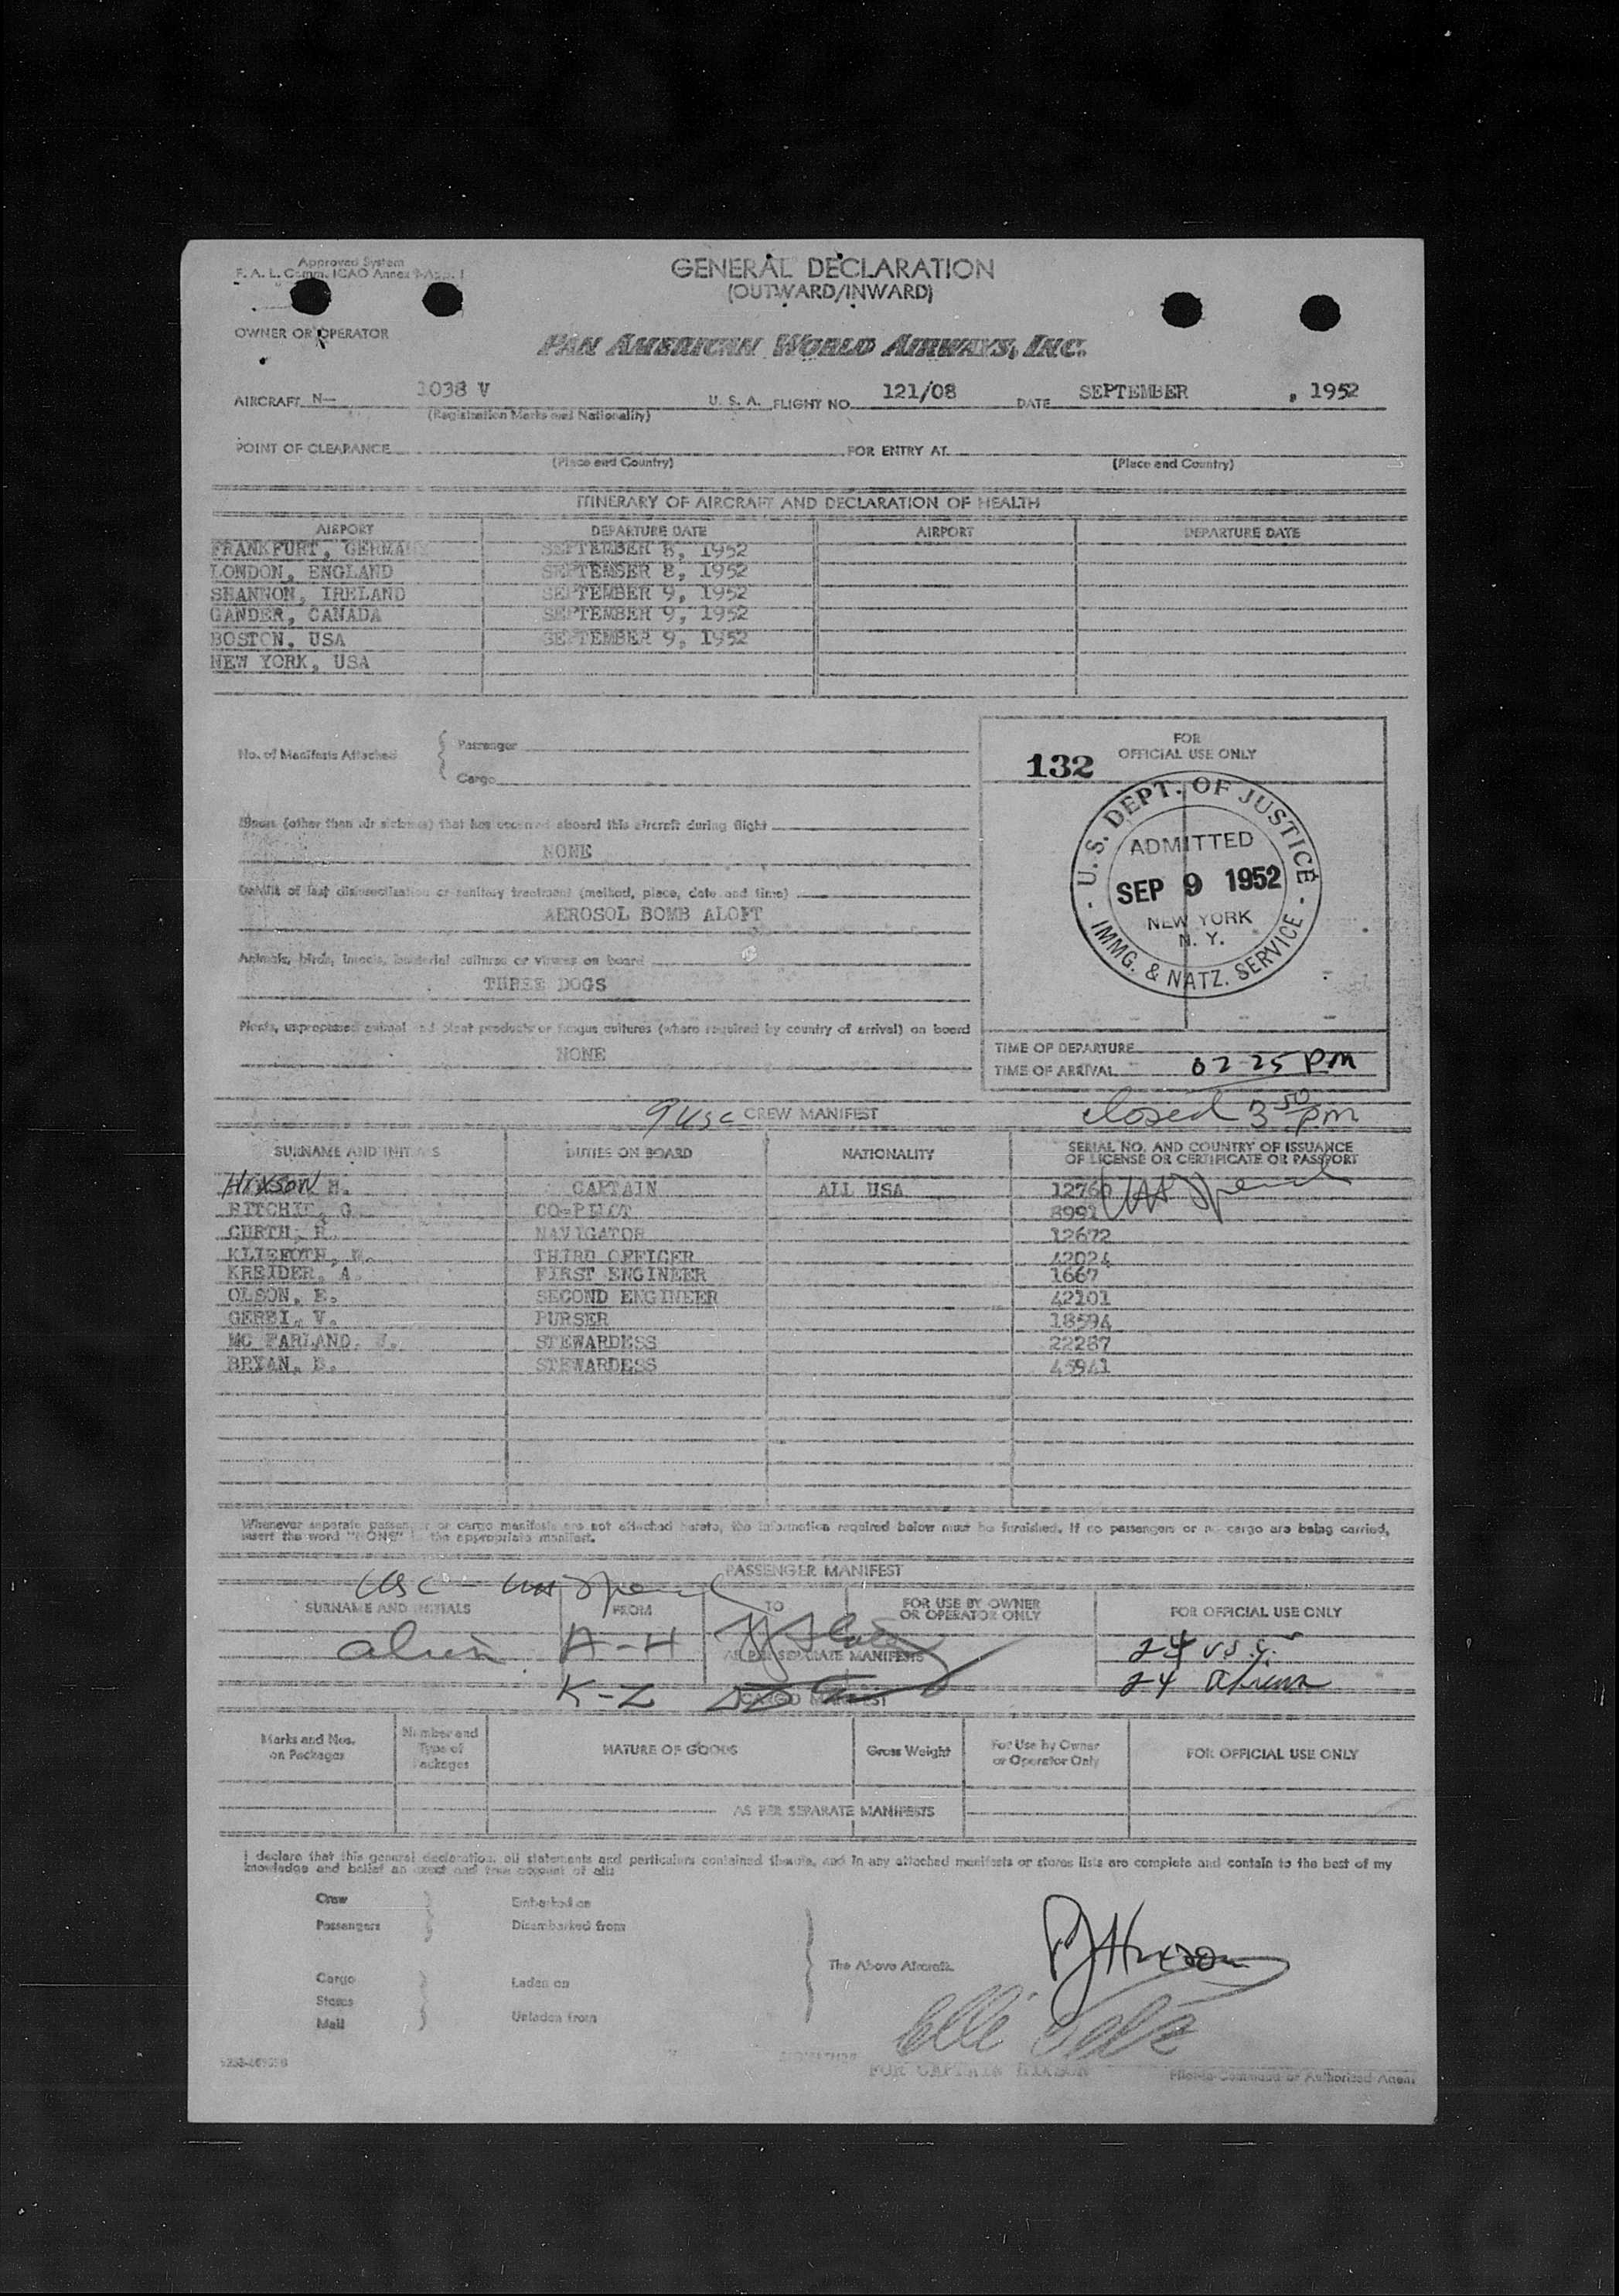 Approved System
F. A. L. Comm. ICAO Annex 9-App. 1
GENERAL DECLARATION
(OUTWARD/INWARD)
OWNER OR OPERATOR
PAN AMERICAN WORLD AIRWAYS, INC.
AIRCRAFT N— 1038 V U. S. A. FLIGHT NO. 121/08 DATE SEPTEMBER , 1952
(Registration Marks and Nationality)
POINT OF CLEARANCE FOR ENTRY AT
(Place and Country) (Place and Country)
ITINERARY OF AIRCRAFT AND DECLARATION OF HEALTH
AIRPORT DEPARTURE DATE AIRPORT DEPARTURE DATE
FRANKFURT, GERMA SEPTEMBER 8, 1952
LONDON, ENGLAND SEPTEMBER 8, 1952
SHANNON, IRELAND SEPTEMBER 9, 1952
GANDER, CANADA SEPTEMBER 9, 1952
BOSTON, USA SEPTEMBER 9, 1952
NEW YORK, USA
No. of Manifests Attached { Passenger
Cargo
FOR
OFFICIAL USE ONLY
132
U. S. DEPT. OF JUSTICE
ADMITTED
SEP 9 1952
NEW YORK
N. Y.
IMMG. & NATZ. SERVICE
Illness (other than air sickness) that has occurred aboard this aircraft during flight
NONE
Details of last disinsectization or sanitary treatment (method, place, date and time)
AEROSOL BOMB ALOFT
Animals, birds, insects, bacterial cultures or viruses on board
THREE DOGS
Plants, unprocessed animal and plant products or fungus cultures (where required by country of arrival) on board
NONE
TIME OF DEPARTURE
TIME OF ARRIVAL 02-25 PM
closed 3 50 pm
9 usc CREW MANIFEST
SURNAME AND INITIALS DUTIES ON BOARD NATIONALITY SERIAL NO. AND COUNTRY OF ISSUANCE
OF LICENSE OR CERTIFICATE OR PASSPORT
HIXSON M. CAPTAIN ALL USA 12760
RITCHIE, G. CO-PILOT 8991
CURTH, R. NAVIGATOR 12672
KLIEFOTH, W. THIRD OFFICER 42024
KREIDER, A. FIRST ENGINEER 1667
OLSON, E. SECOND ENGINEER 42101
GERBI, V. PURSER 18594
MC FARLAND, J. STEWARDESS 22287
BRYAN, B. STEWARDESS 45941
Whenever separate passenger or cargo manifests are not attached hereto, the information required below must be furnished. If no passengers or no cargo are being carried,
insert the word "NONE" in the appropriate manifest.
PASSENGER MANIFEST
USC -
SURNAME AND INITIALS FROM TO FOR USE BY OWNER
OR OPERATOR ONLY FOR OFFICIAL USE ONLY
alien A-H 24
AS PER SEPARATE MANIFESTS
K-Z 24 aliens
CARGO MANIFEST
Marks and Nos.
on Packages
Number and
Type of
Packages
NATURE OF GOODS Gross Weight For Use by Owner
or Operator Only FOR OFFICIAL USE ONLY
AS PER SEPARATE MANIFESTS
I declare that this general declaration, all statements and particulars contained therein, and in any attached manifests or stores lists are complete and contain to the best of my
knowledge and belief an exact and true account of all:
Crew Embarked on
Passengers Disembarked from
The Above Aircraft.
Cargo Laden on
Stores
Mail Unladen from
Hixson
FOR CAPTAIN HIXSON
Pilot-in-Command or Authorized Agent